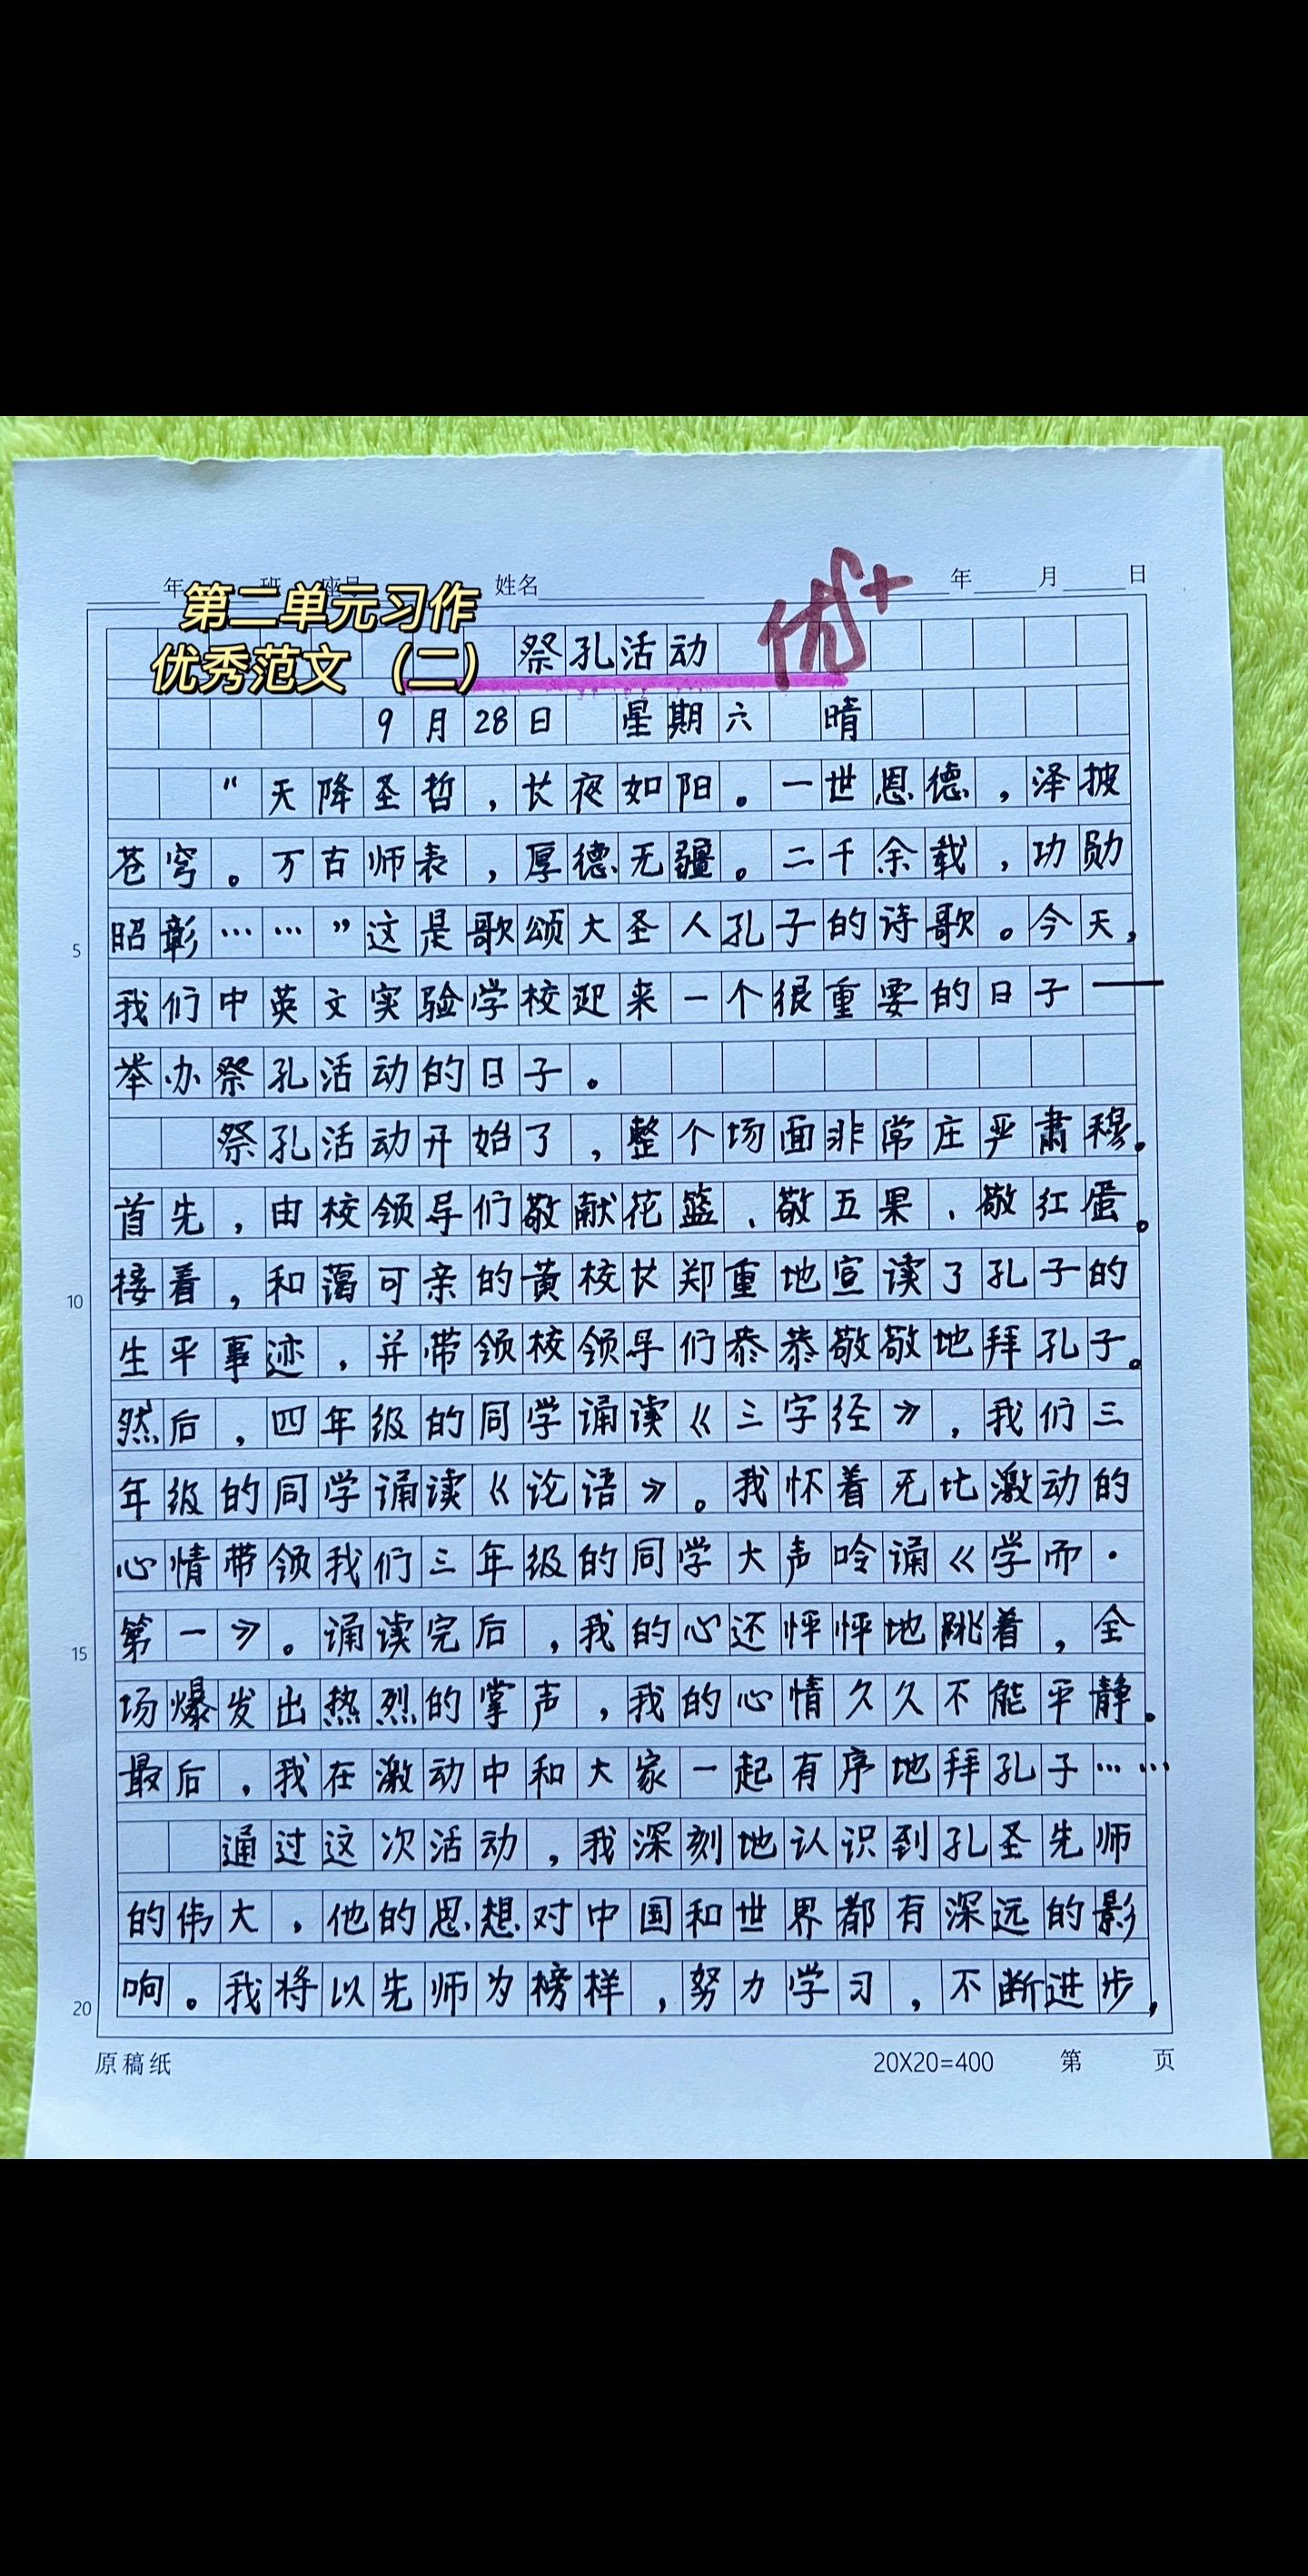 年 班 座号 姓名 年 月 日
第二单元习作
优秀范文（二）
优+
祭孔活动
9月28日 星期六 晴
“天降圣哲，长夜如阳。一世恩德，泽披
苍穹。万古师表，厚德无疆。二千余载，功勋
昭彰……”这是歌颂大圣人孔子的诗歌。今天，
5
我们中英文实验学校迎来一个很重要的日子——
举办祭孔活动的日子。
祭孔活动开始了，整个场面非常庄严肃穆。
首先，由校领导们敬献花篮、敬五果、敬红蛋。
接着，和蔼可亲的黄校长郑重地宣读了孔子的
10
生平事迹，并带领校领导们恭恭敬敬地拜孔子。
然后，四年级的同学诵读《三字经》，我们三
年级的同学诵读《论语》。我怀着无比激动的
心情带领我们三年级的同学大声吟诵《学而·
第一》。诵读完后，我的心还怦怦地跳着，全
15
场爆发出热烈的掌声，我的心情久久不能平静。
最后，我在激动中和大家一起有序地拜孔子……
通过这次活动，我深刻地认识到孔圣先师
的伟大，他的思想对中国和世界都有深远的影
响。我将以先师为榜样，努力学习，不断进步，
20
原稿纸 20X20=400 第 页